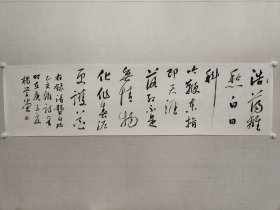 浩荡离
愁白日
斜
吟鞭东指
即天涯
落红不是
无情物
化作春泥
更护花
右录清龚自珍
己亥杂诗